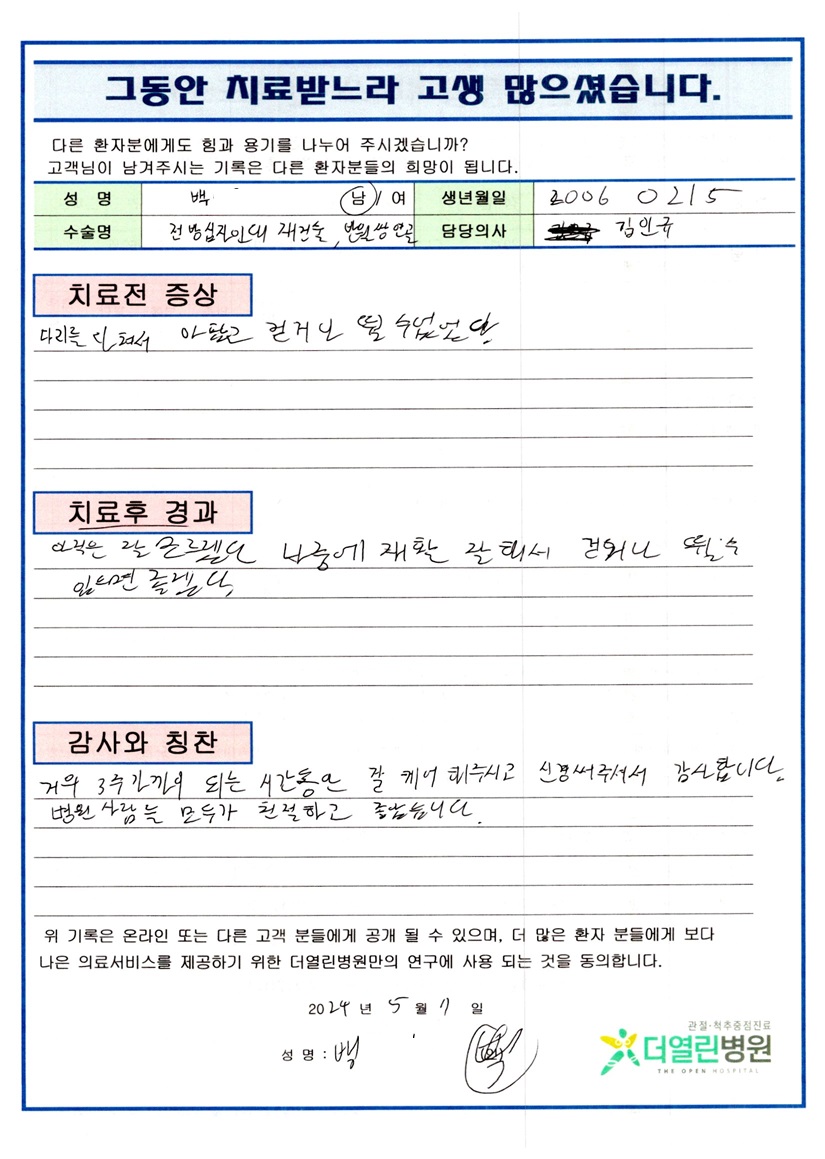 그동안 치료받느라 고생 많으셨습니다.
다른 환자분에게도 힘과 용기를 나누어 주시겠습니까?
고객님이 남겨주시는 기록은 다른 환자분들의 희망이 됩니다.
성 명 백 남/여 생년월일 2006 0215
수술명 전방십자인대 재건술, 반월상연골 담당의사 김인규
치료전 증상
다리를 다쳐서 아팠고 걷거나 뛸 수없었다.
치료후 경과
아직은 잘 모르겠다 나중에 재활 잘해서 걷거나 뛸수
있으면 좋겠다.
감사와 칭찬
거의 3주가까이 되는 시간동안 잘 케어해주시고 신경써주셔서 감사합니다.
병원 사람들 모두가 친절하고 좋았습니다.
위 기록은 온라인 또는 다른 고객 분들에게 공개 될 수 있으며, 더 많은 환자 분들에게 보다
나은 의료서비스를 제공하기 위한 더열린병원만의 연구에 사용 되는 것을 동의합니다.
2024 년 5 월 11 일
성 명 : 백
관절·척추중점진료
더열린병원
THE OPEN HOSPITAL